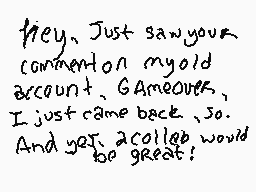 Hey, Just saw your
comment on my old
account, GAmeoveR,
I just came back, so.
And yes, a collab would
be great!